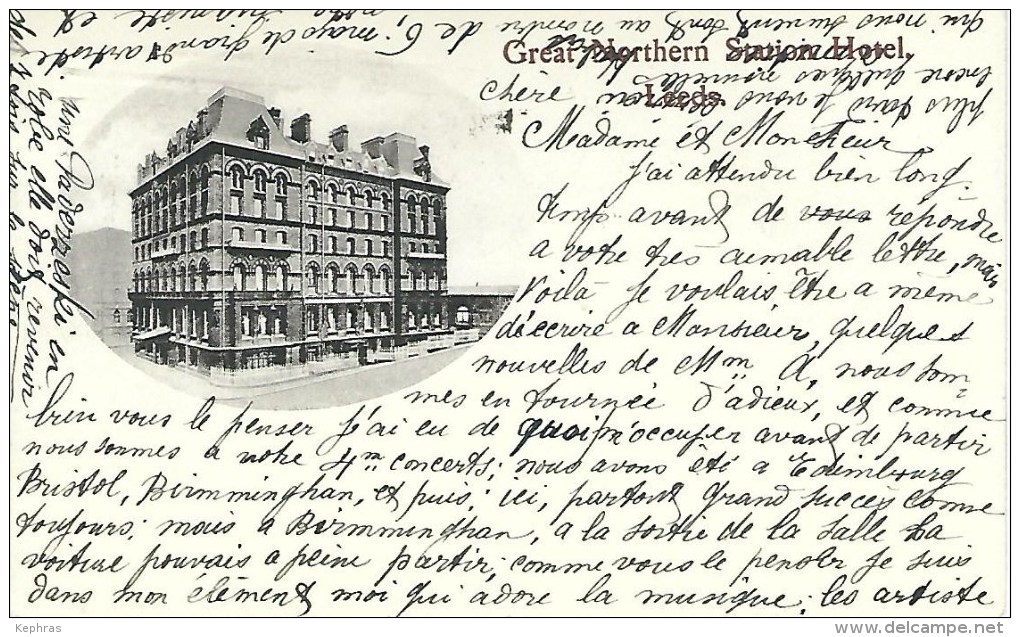 Great Northern Station Hotel.
Leeds
chère
Madame et Monsieur
J'ai attendu bien long.
temps avant de vous repondre
a votre très aimable lettre, mais
Voila je voulais être a même
décrire a Monsieur, quelques
nouvelles de Mm A, nous som
mes en tournée d'adieux, et comme
bien vous le penser J'ai eu de quoi m'occuper avant de partir
nous sommes a notre 4m concerts; nous avons été a Edimbourg
Bristol, Birmminghan, et puis; ici, partout grand succès comme
toujours; mais a Birmminghan, a la sortie de la salle La
voiture pouvais a peine partir, comme vous le penser Je suis
dans mon élément moi qui adore la musique; les artiste
qui nous suivent sont au nombre de 6, mais de grand artiste
une Paderewski en
robe elle doit revenir
plus dans
encore quelques